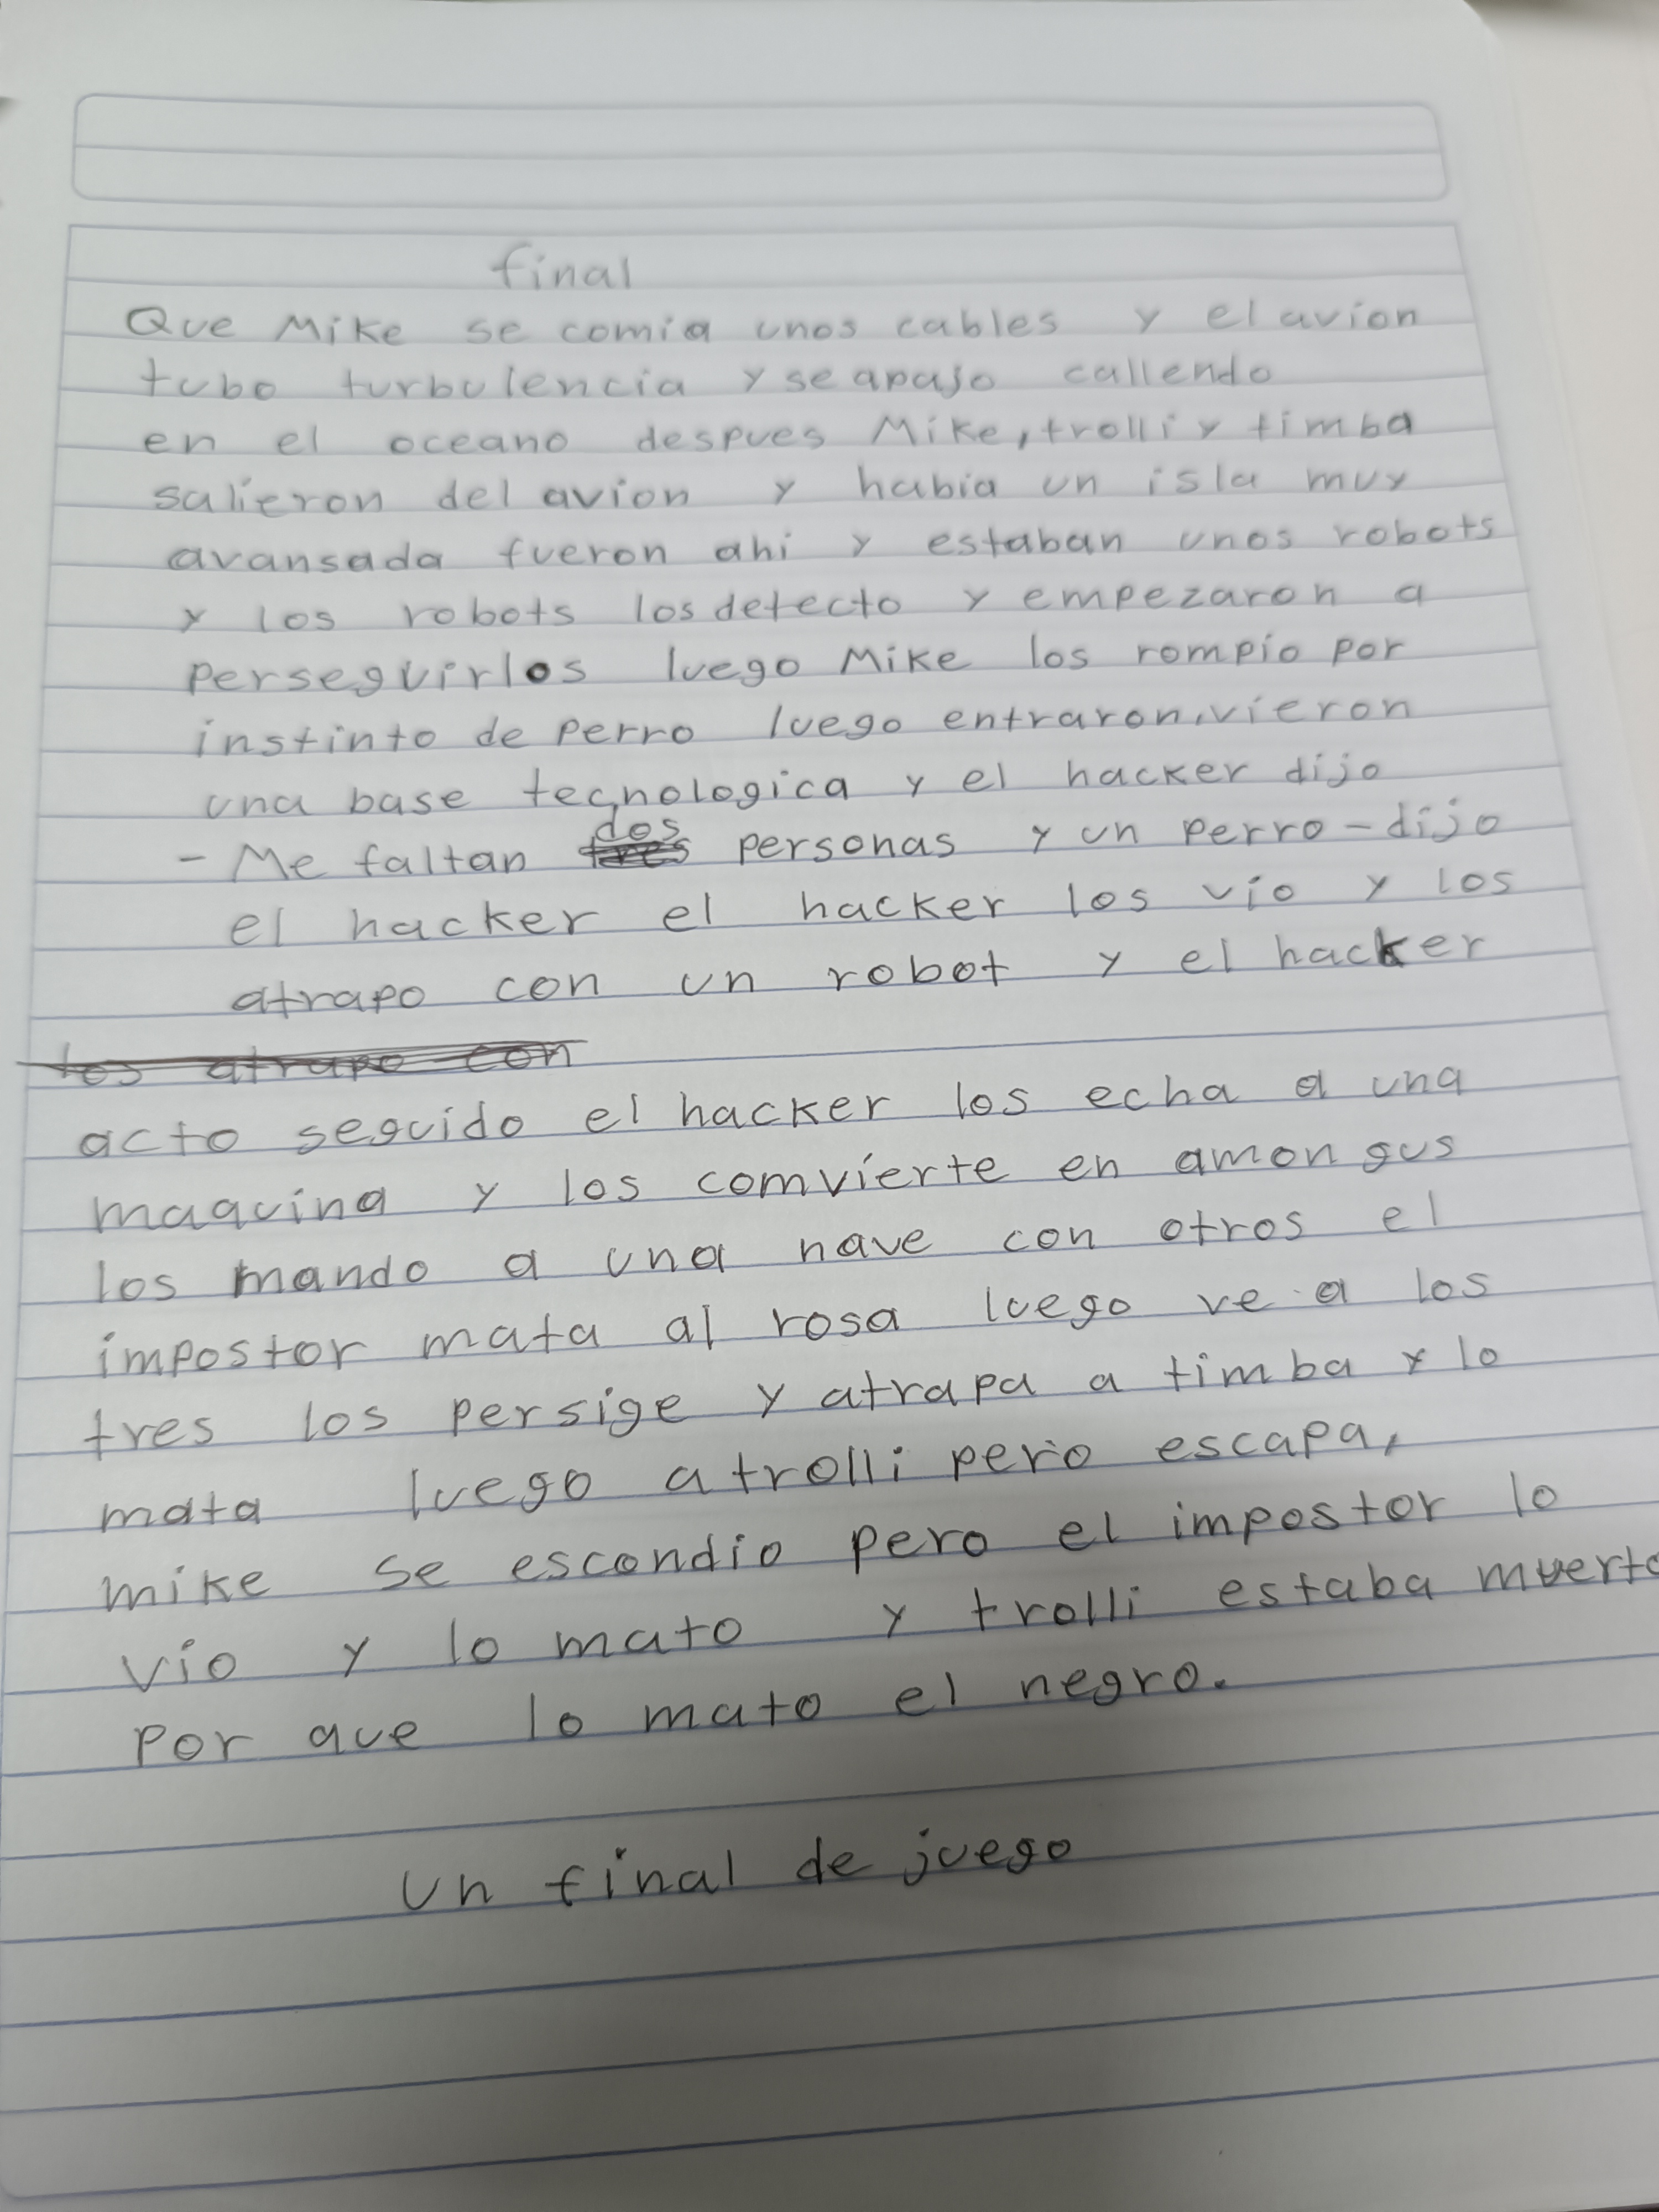 final
Que Mike se comia unos cables y el avion
tubo turbulencia y se apajo callendo
en el oceano despues Mike, trolli y timba
salieron del avion y habia un isla muy
avansada fueron ahi y estaban unos robots
y los robots los detecto y empezaron a
perseguirlos luego Mike los rompio por
instinto de perro luego entraron, vieron
una base tecnologica y el hacker dijo
- Me faltan dos personas y un perro - dijo
el hacker el hacker los vio y los
atrapo con un robot y el hacker
los atrapo con
acto seguido el hacker los echa a una
maquina y los comvierte en amongus
los mando a una nave con otros el
impostor mata al rosa luego ve a los
tres los persige y atrapa a timba y lo
mata luego a trolli pero escapa,
mike se escondio pero el impostor lo
vio y lo mato y trolli estaba muerto
por que lo mato el negro.
un final de juego